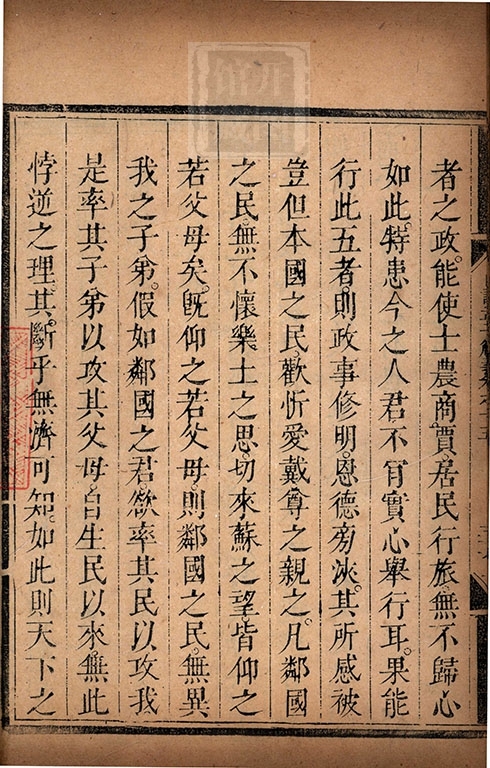 者之政能使士農商賈居民行旅無不歸心
如此特患今之人君不肯實心舉行耳果能
行此五者則政事修明恩德旁浹其所感被
豈但本國之民歡忻愛戴尊之親之凡鄰國
之民無不懷樂土之思切來蘇之望皆仰之
若父母矣旣仰之若父母則鄰國之民無異
我之子弟假如鄰國之君欲率其民以攻我
是率其子弟以攻其父母自生民以來無此
悖逆之理其斷乎無濟可知如此則天下之